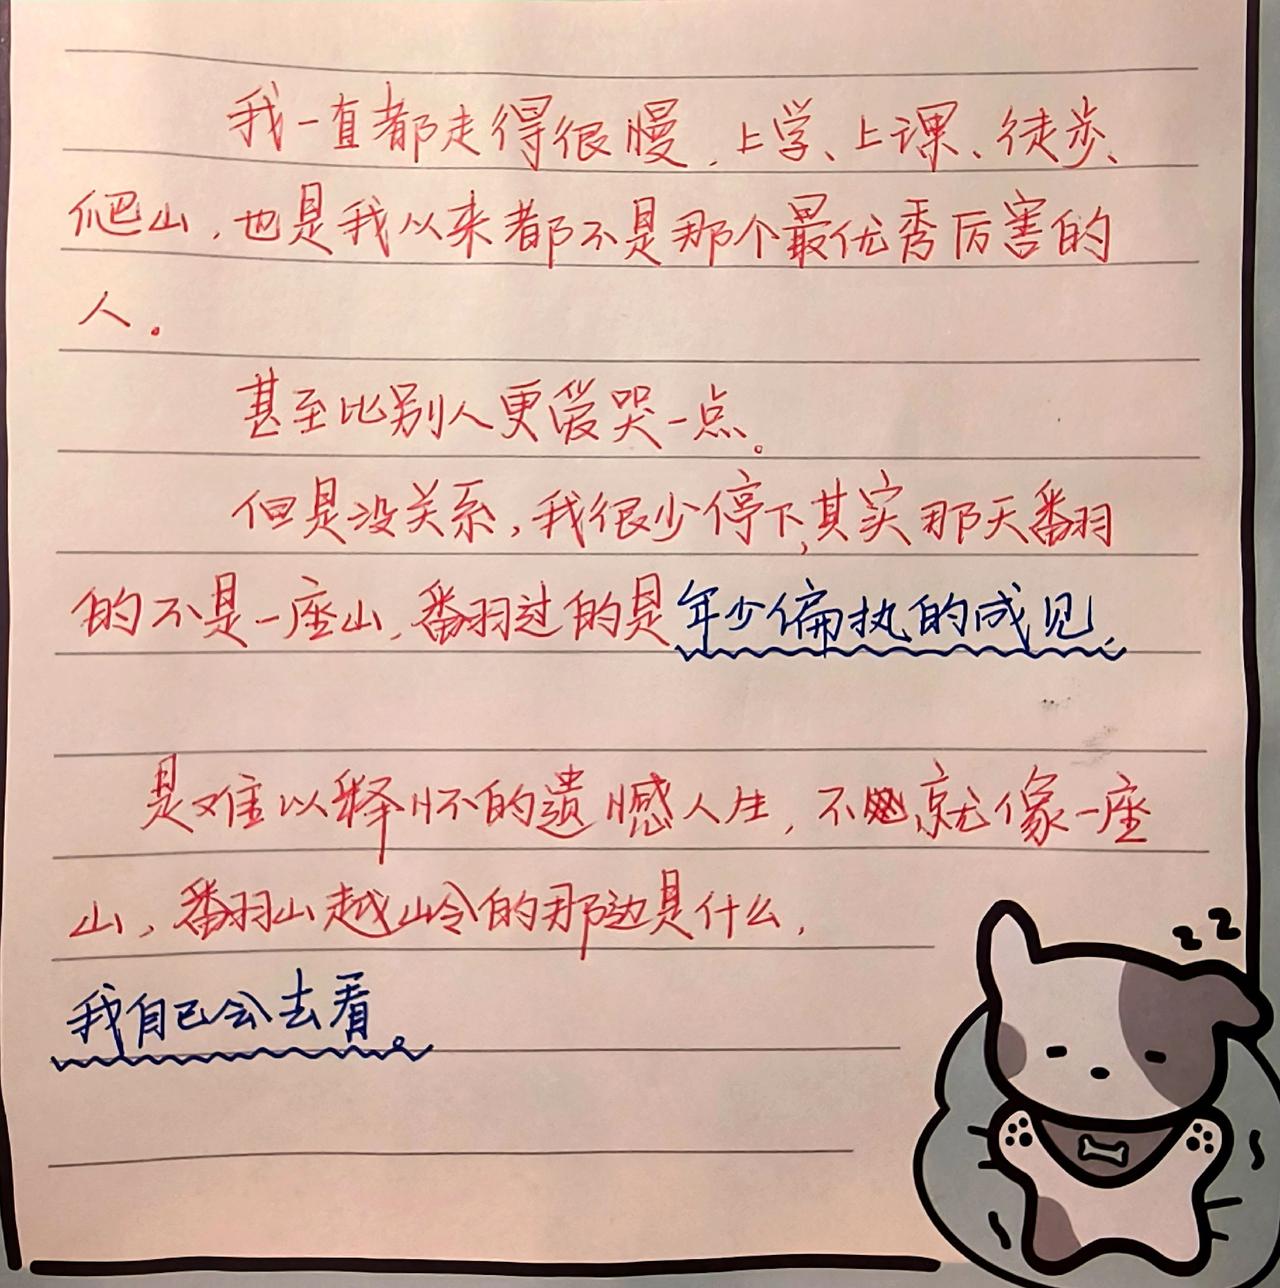 我一直都走得很慢,上学、上课、徒步、
爬山,也是我以来都不是那个最优秀厉害的
人。
甚至比别人更爱哭一点。
但是没关系,我很少停下,其实那天翻
的不是一座山,翻过的是年少偏执的成见,
是难以释怀的遗憾人生,不就像一座
山,翻山越岭的那边是什么,
我自己会去看。
zz